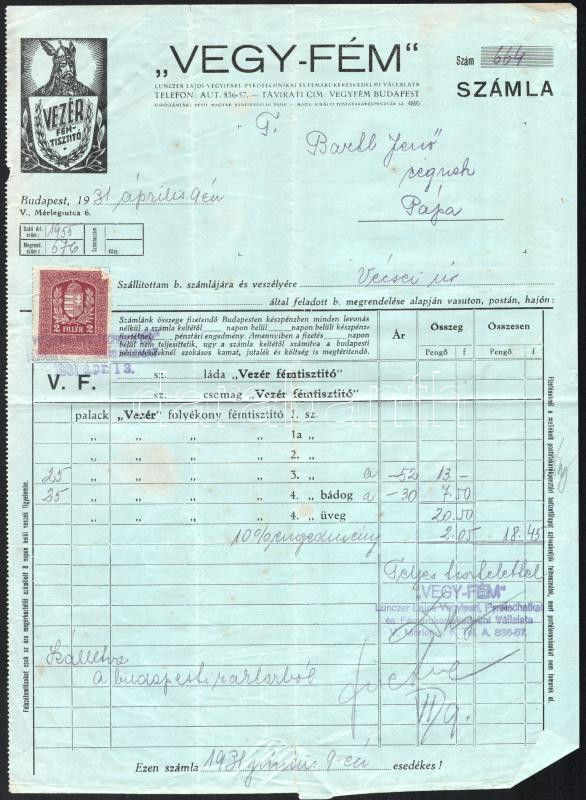 „VEGY-FÉM"
LUNCZER LAJOS VEGYIPARI, PYROTECHNIKAI ÉS FÉMÁRU KERESKEDELMI VÁLLALATA
TELEFON: AUT. 836-57. — TÁVIRATI CIM: VEGYFÉM BUDAPEST
GIRÓSZÁMLA: PESTI MAGYAR KERESKEDELMI BANK — MAGY. KIRÁLYI POSTATAKARÉKPÉNZTÁR SZ.
Szám 664
SZÁMLA
VEZÉR
FÉM-
TISZTITÓ
T. Bartl Jenő
cégnek
Pápa
Budapest, 1931 április 9én
V., Mérleg-utca 6.
Száll. ért. szám: 1955
Megrend. szám: 576
2 FILLÉR 2
Szállitottam b. számlájára és veszélyére Vécsei úr
által feladott b. megrendelése alapján vasuton, postán, hajón:
Számlánk összege fizetendő Budapesten készpénzben minden levonás
nélkül a számla keltétől napon belül napon belüli készpénz-
fizetésnél pénztári engedmény. Amennyiben a fizetés napon
belül nem teljesittetik, ugy a számla keltétől számitva a budapesti
pénzintézeteknél szokásos kamat, jutalék és költség is megtéritendő.
Ár Összeg Összesen
Pengő f Pengő f
1931 ÁPR 13.
V. F. sz. láda „Vezér fémtisztitó"
sz. csomag „Vezér fémtisztitó"
palack „Vezér" folyékony fémtisztitó 1. sz.
„ „ „ „ 1a „
„ „ „ „ 2. „
25 „ „ „ „ 3. „ a -52 13 -
25 „ „ „ „ 4. „ bádog a -30 7.50
„ „ „ „ 4. „ üveg 20.50
10% engedmény 2.05 18.45
Teljes tisztelettel
„VEGY-FÉM"
Lunczer Lajos Vegyipari, Pyrotechnikai
és Fémárukereskedelmi Vállalata
V. Mérleg-u. 6. Tel. A. 836-57.
Szállítva
a budapesti raktárból
VI/9.
Ezen számla 1931 junius 9-én esedékes!
Felszólamlásokat csak az áru megérkezésétől számitott 8 napon belül veszek figyelembe.